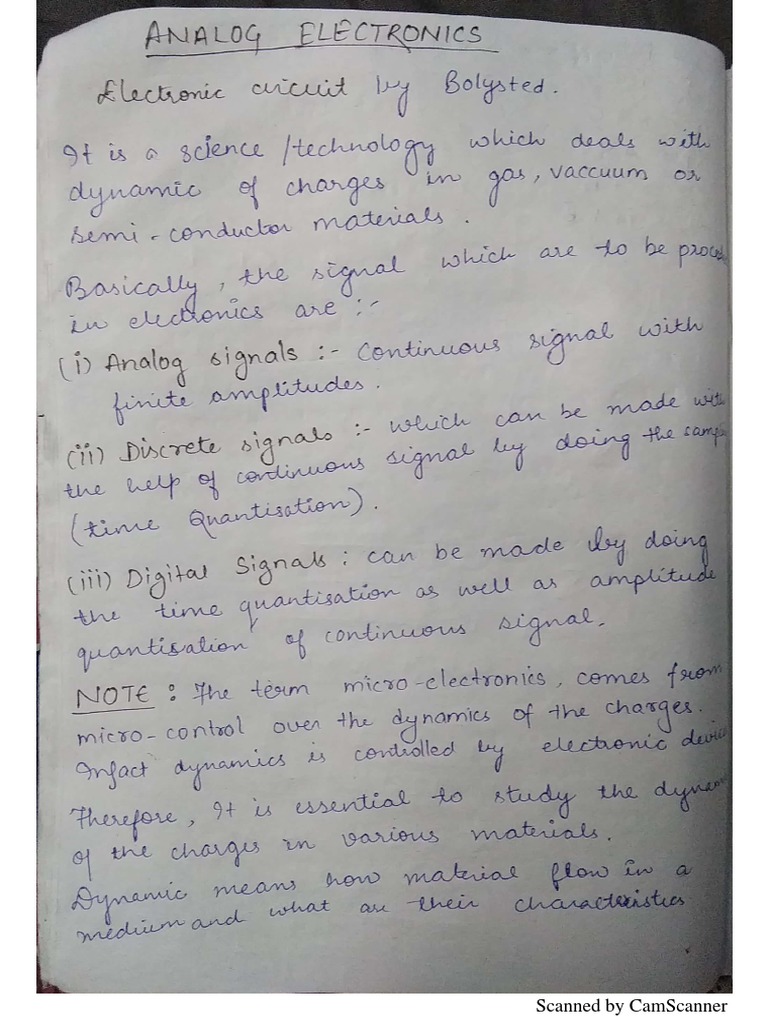 ANALOG ELECTRONICS
Electronic circuit by Bolysted.
It is a science /technology which deals with
dynamic of charges in gas, vaccuum or
semi-conductor materials.
Basically, the signal which are to be proce
in electronics are :-
(i) Analog signals :- Continuous signal with
finite amplitudes.
(ii) Discrete signals :- which can be made with
the help of continuous signal by doing the samp
(time Quantisation).
(iii) Digital Signals : can be made by doing
the time quantisation as well as amplitude
quantisation of continuous signal.
NOTE : The term micro-electronics, comes from
micro-control over the dynamics of the charges.
Infact dynamics is controlled by electronic device
Therefore, It is essential to study the dynam
of the charges in various materials.
Dynamic means how material flow in a
medium and what are their characteristics
Scanned by CamScanner